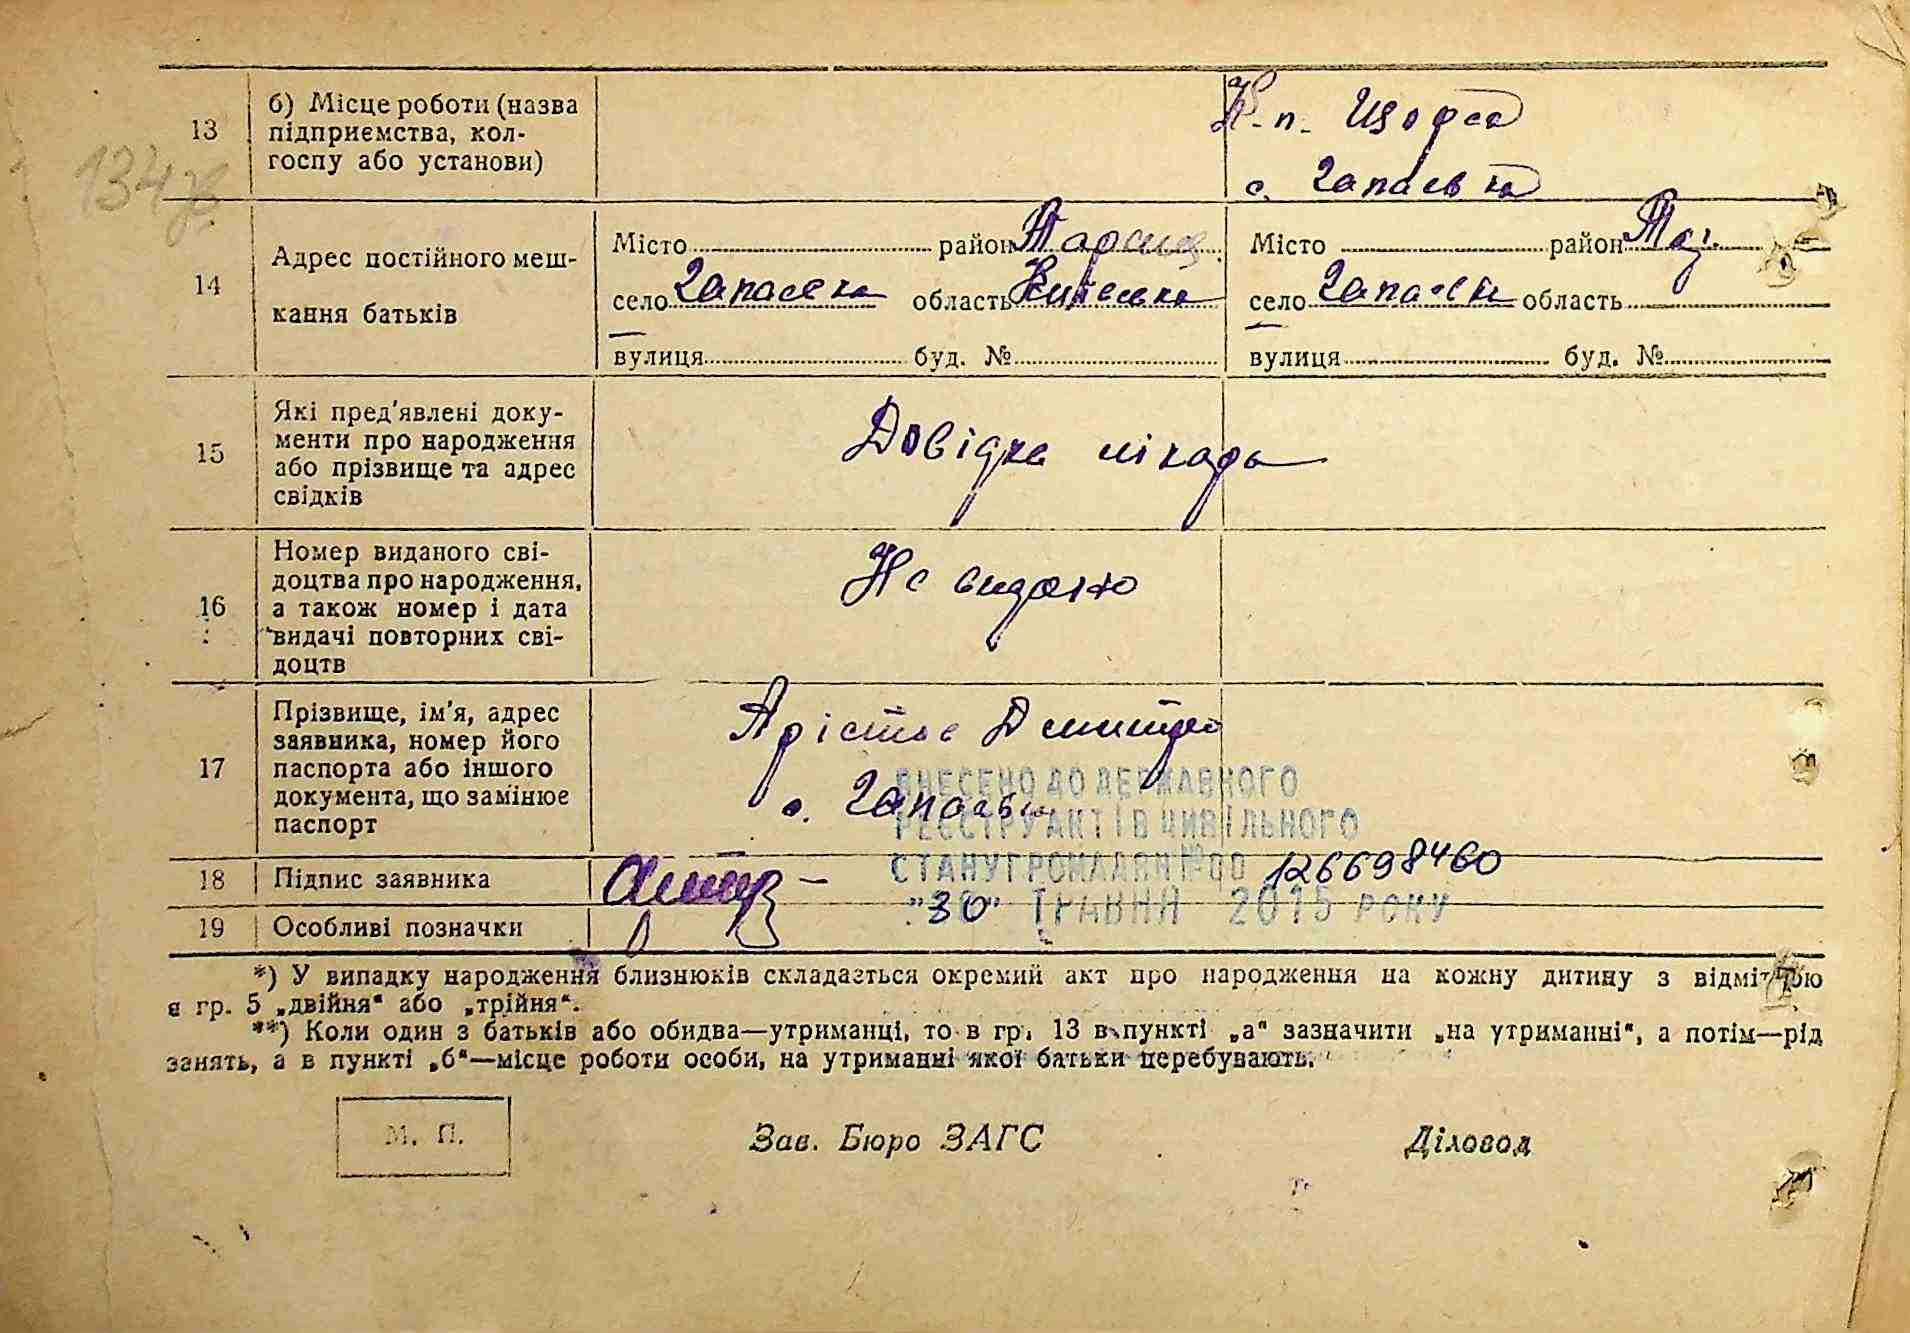 134
13
б) Місце роботи (назва
підприємства, кол-
госпу або установи)
К-п. Щорса
с. Чапаєвка
14
Адрес постійного меш-
кання батьків
Місто район Таращ.
село Чапаєвка область Київська
вулиця буд. №
Місто район
село Чапаєвка область
вулиця буд. №
15
Які пред'явлені доку-
менти про народження
або прізвище та адрес
свідків
Довідка лікаря
16
Номер виданого сві-
доцтва про народження,
а також номер і дата
видачі повторних сві-
доцтв
Не видано
17
Прізвище, ім'я, адрес
заявника, номер його
паспорта або іншого
документа, що замінює
паспорт
Дмитро
с. Чапаєвка
ВНЕСЕНО ДО ДЕРЖАВНОГО
РЕЄСТРУ АКТІВ ЦИВІЛЬНОГО
СТАНУ ГРОМАДЯН № 00 126698460
"30" ТРАВНЯ 2015 РОКУ
18
Підпис заявника
19
Особливі позначки
*) У випадку народження близнюків складається окремий акт про народження на кожну дитину з відміткою
в гр. 5 „двійня“ або „трійня“.
**) Коли один з батьків або обидва—утриманці, то в гр. 13 в пункті „а“ зазначити „на утриманні“, а потім—рід
занять, а в пункті „б“—місце роботи особи, на утриманні якої батьки перебувають.
М. П.
Зав. Бюро ЗАГС
Діловод